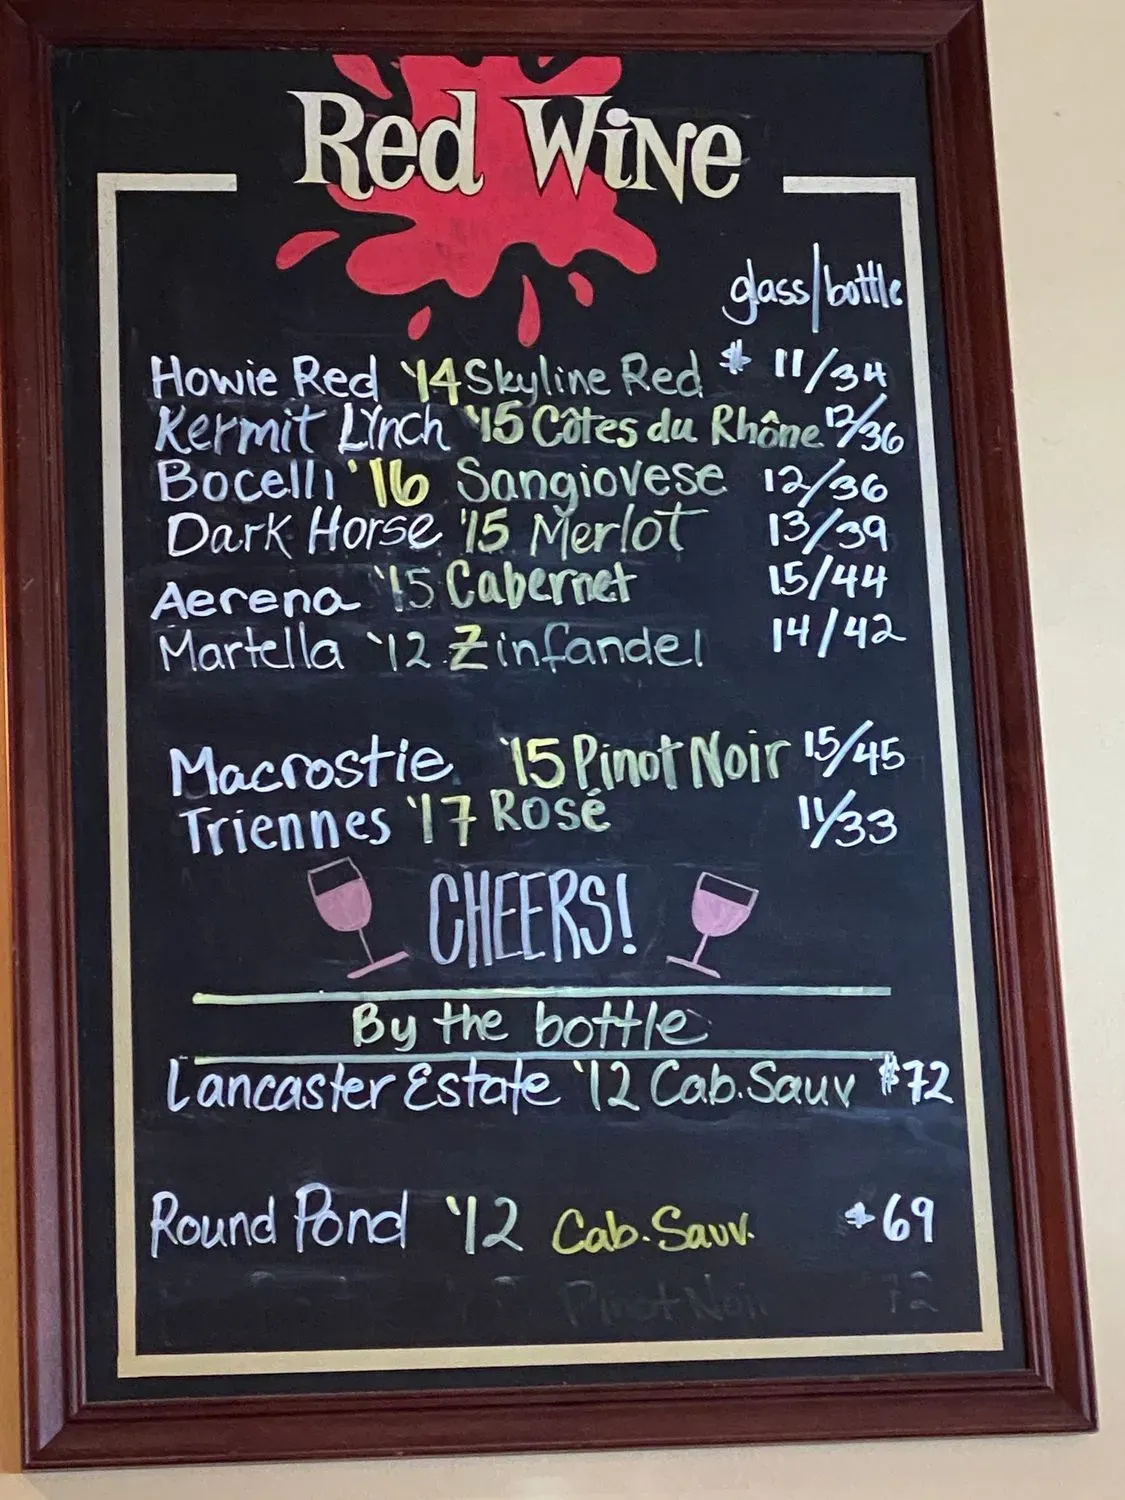 Red Wine
glass/bottle
Howie Red '14 Skyline Red $ 11/34
Kermit Lynch '15 Côtes du Rhône 12/36
Bocelli '16 Sangiovese 12/36
Dark Horse '15 Merlot 13/39
Aerena '15 Cabernet 15/44
Martella '12 Zinfandel 14/42
Macrostie '15 Pinot Noir 15/45
Triennes '17 Rosé 11/33
CHEERS!
By the bottle
Lancaster Estate '12 Cab. Sauv $72
Round Pond '12 Cab. Sauv. $69
Pinot Noir 72